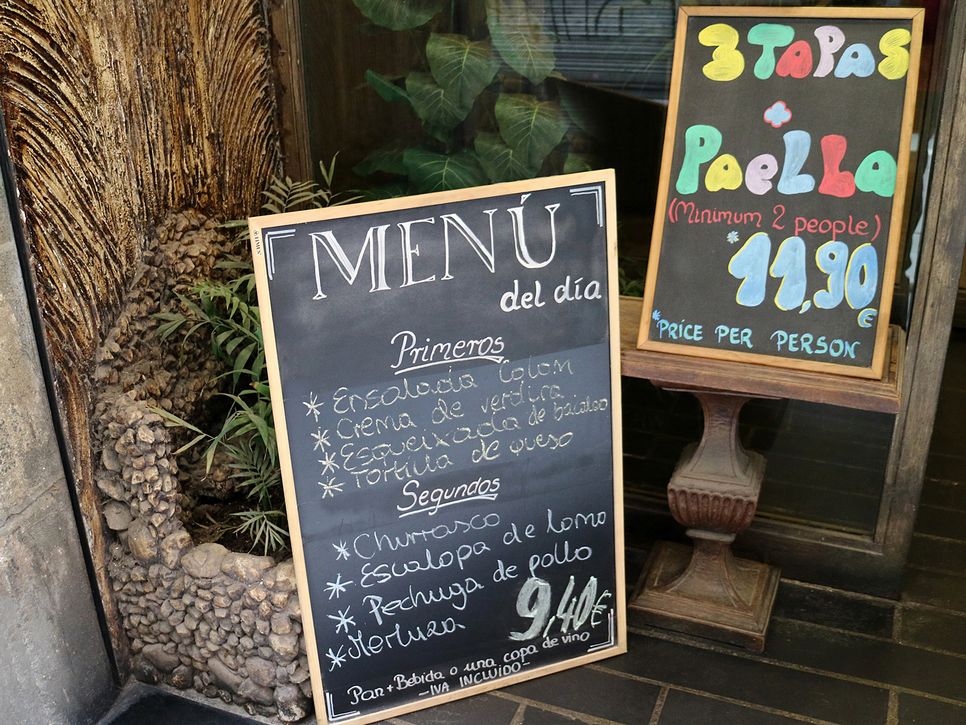 MENÚ
del día
Primeros
* Ensalada Colom
* Crema de verdura
* Esqueixada de bacalao
* Tortilla de queso
Segundos
* Churrasco
* Escalopa de lomo
* Pechuga de pollo
* Merluza
9,40€
Pan + Bebida o una copa de vino
- IVA INCLUIDO -
3 TAPAS
+
PaeLLa
(Minimum 2 people)
* 11,90
€
* PRICE PER PERSON